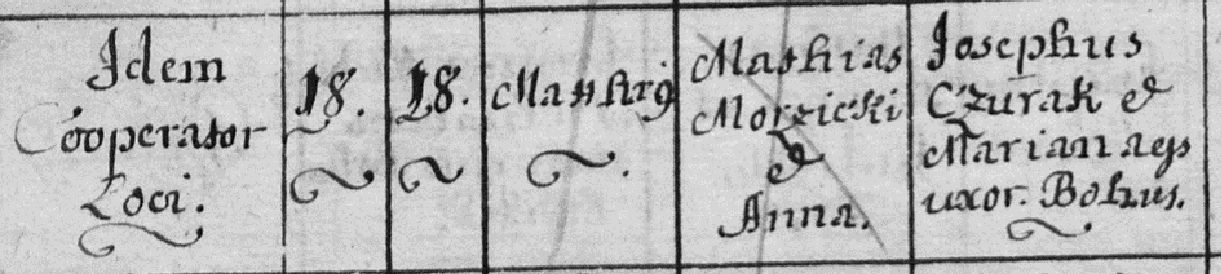 Idem
Cooperator
Loci.
18.
18.
Matthæg
Mathias
Morzicki
&
Anna.
Josephus
Czurak &
Marianna ejs
uxor. Bohus.